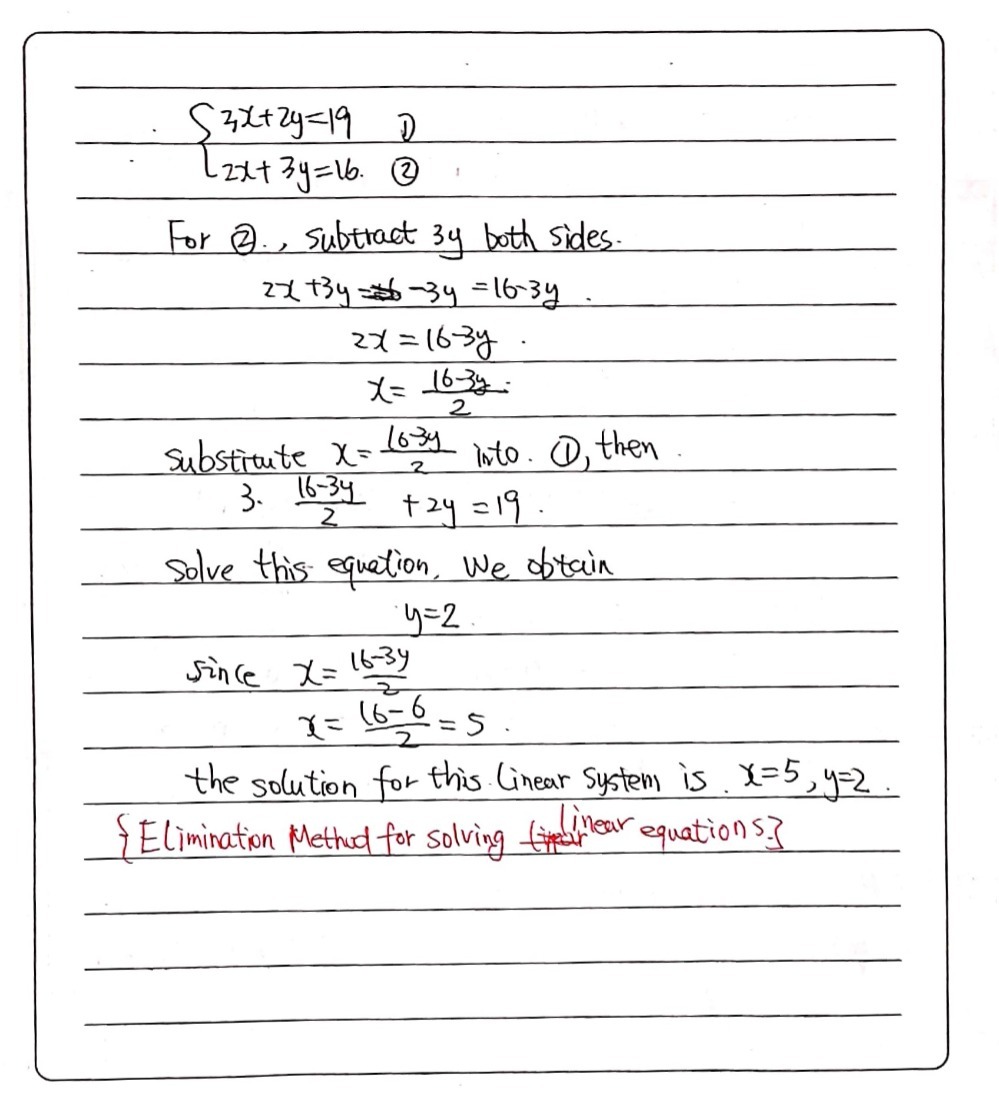 { 3x+2y=19 ①
2x+3y=16. ②
For ②., subtract 3y both sides.
2x+3y -3y =16-3y.
2x=16-3y.
x= (16-3y)/2.
Substitute x= (16-3y)/2 into. ①, then.
3· (16-3y)/2 +2y =19.
Solve this equation, We obtain
y=2.
Since x= (16-3y)/2
x= (16-6)/2 =5.
the solution for this Linear System is. x=5, y=2.
{Elimination Method for solving Linear equations.}